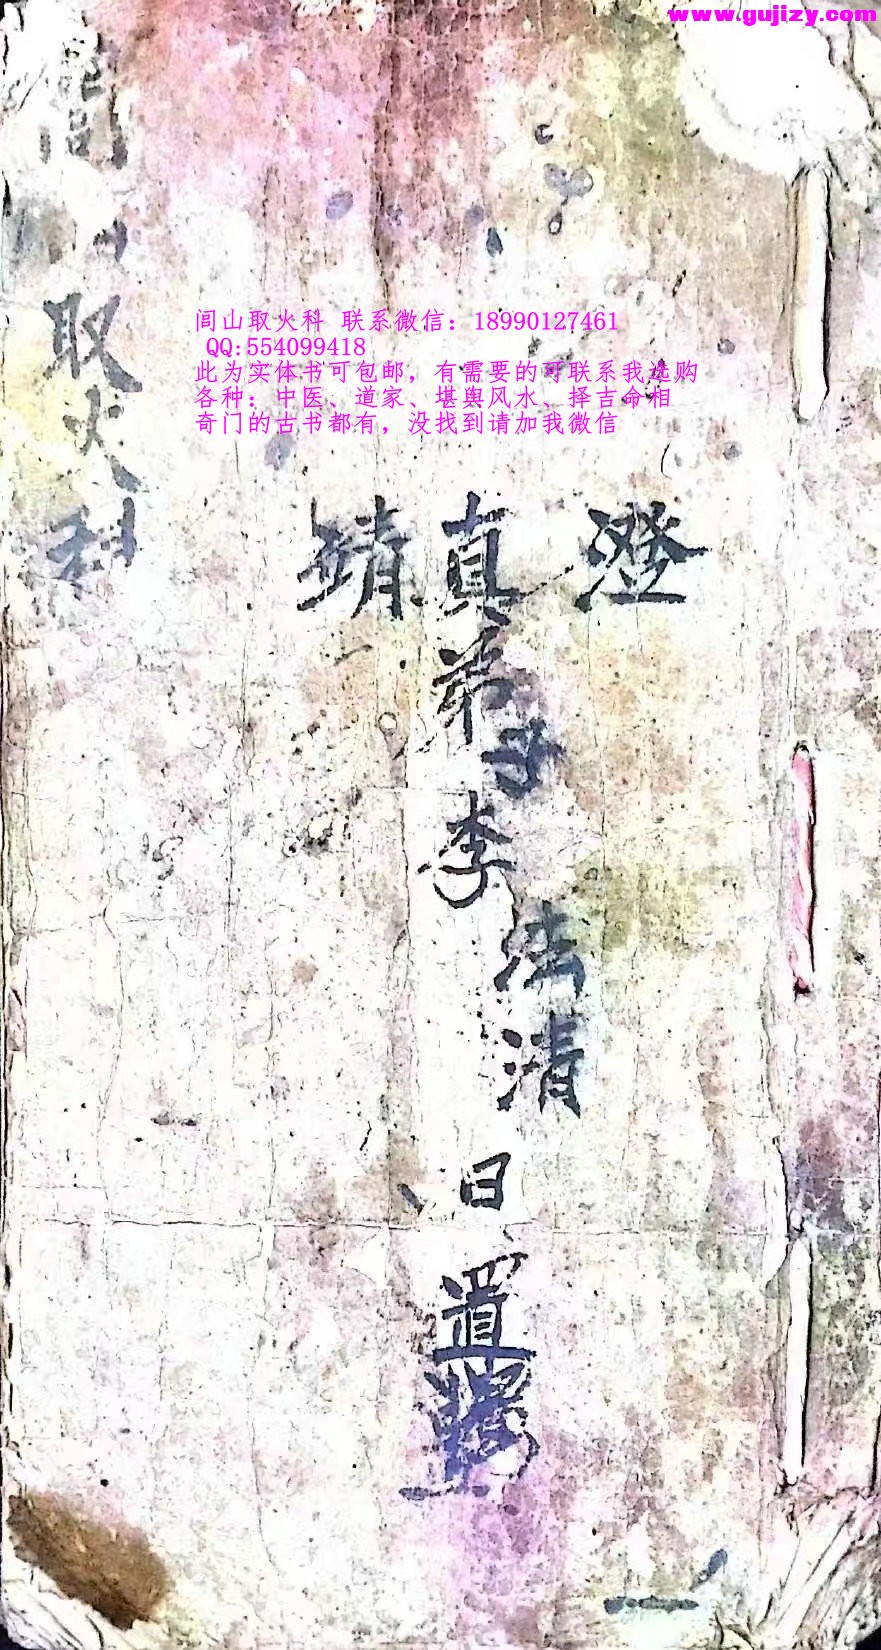 www.gujizy.com
闾山取火科 联系微信：18990127461
QQ:554099418
此为实体书可包邮，有需要的可联系我选购
各种：中医、道家、堪舆风水、择吉命相
奇门的古书都有，没找到请加我微信
取火科
澄真靖
弟子李法清日置